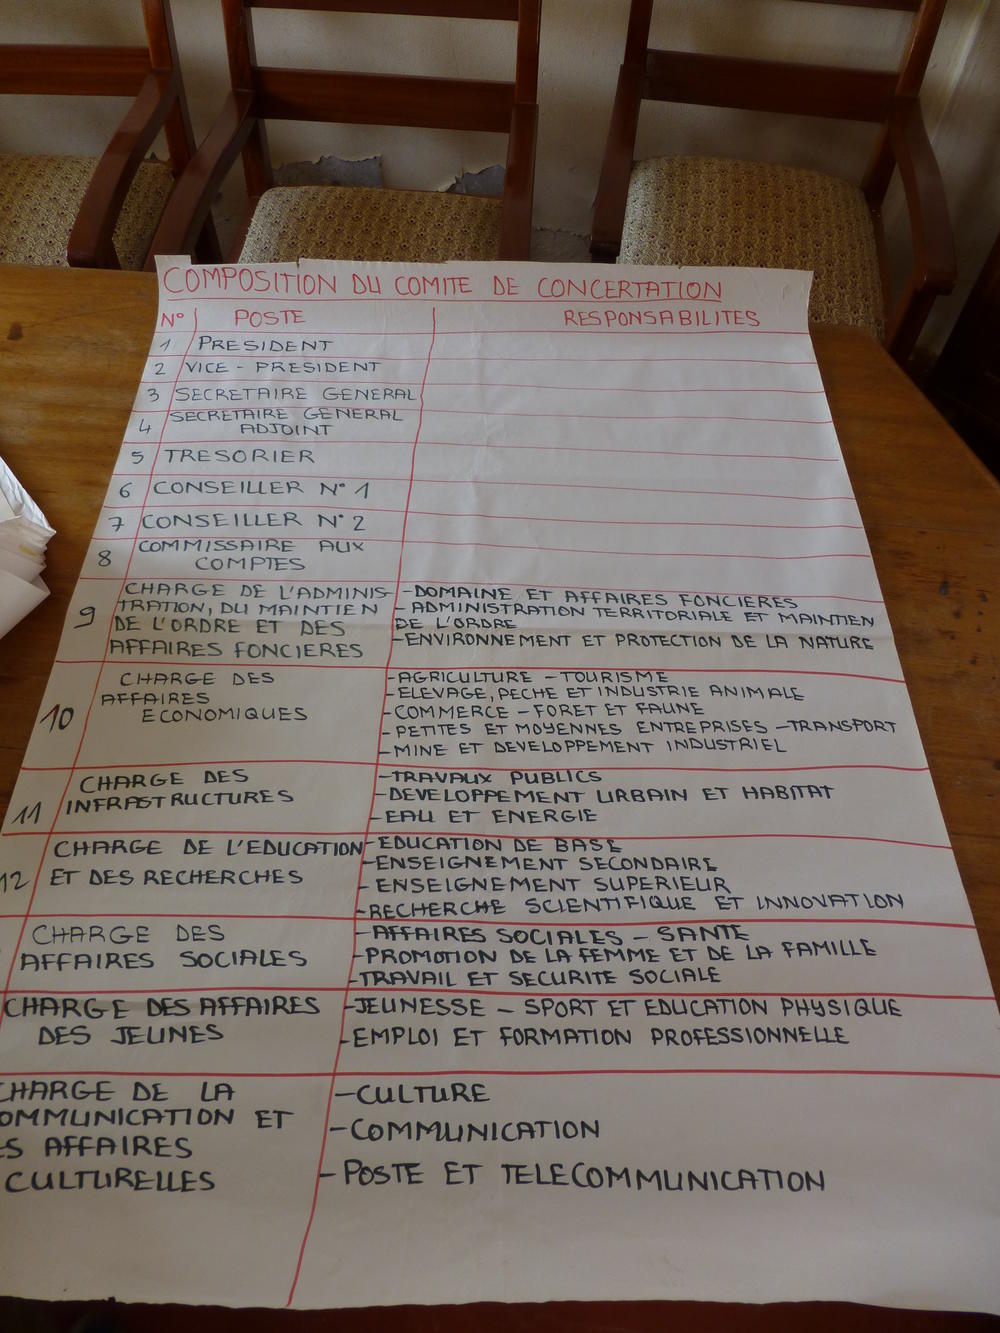 COMPOSITION DU COMITE DE CONCERTATION
N° POSTE RESPONSABILITES
1 PRESIDENT
2 VICE - PRESIDENT
3 SECRETAIRE GENERAL
4 SECRETAIRE GENERAL
ADJOINT
5 TRESORIER
6 CONSEILLER N° 1
7 CONSEILLER N° 2
8 COMMISSAIRE AUX
COMPTES
9 CHARGE DE L'ADMINIS-
TRATION, DU MAINTIEN
DE L'ORDRE ET DES
AFFAIRES FONCIERES
- DOMAINE ET AFFAIRES FONCIERES
- ADMINISTRATION TERRITORIALE ET MAINTIEN
DE L'ORDRE
- ENVIRONNEMENT ET PROTECTION DE LA NATURE
10 CHARGE DES
AFFAIRES
ECONOMIQUES
- AGRICULTURE - TOURISME
- ELEVAGE, PECHE ET INDUSTRIE ANIMALE
- COMMERCE - FORET ET FAUNE
- PETITES ET MOYENNES ENTREPRISES - TRANSPORT
- MINE ET DEVELOPPEMENT INDUSTRIEL
11 CHARGE DES
INFRASTRUCTURES
- TRAVAUX PUBLICS
- DEVELOPPEMENT URBAIN ET HABITAT
- EAU ET ENERGIE
12 CHARGE DE L'EDUCATION
ET DES RECHERCHES
- EDUCATION DE BASE
- ENSEIGNEMENT SECONDAIRE
- ENSEIGNEMENT SUPERIEUR
- RECHERCHE SCIENTIFIQUE ET INNOVATION
CHARGE DES
AFFAIRES SOCIALES
- AFFAIRES SOCIALES - SANTE
- PROMOTION DE LA FEMME ET DE LA FAMILLE
- TRAVAIL ET SECURITE SOCIALE
CHARGE DES AFFAIRES
DES JEUNES
- JEUNESSE - SPORT ET EDUCATION PHYSIQUE
- EMPLOI ET FORMATION PROFESSIONNELLE
CHARGE DE LA
OMMUNICATION ET
ES AFFAIRES
CULTURELLES
- CULTURE
- COMMUNICATION
- POSTE ET TELECOMMUNICATION